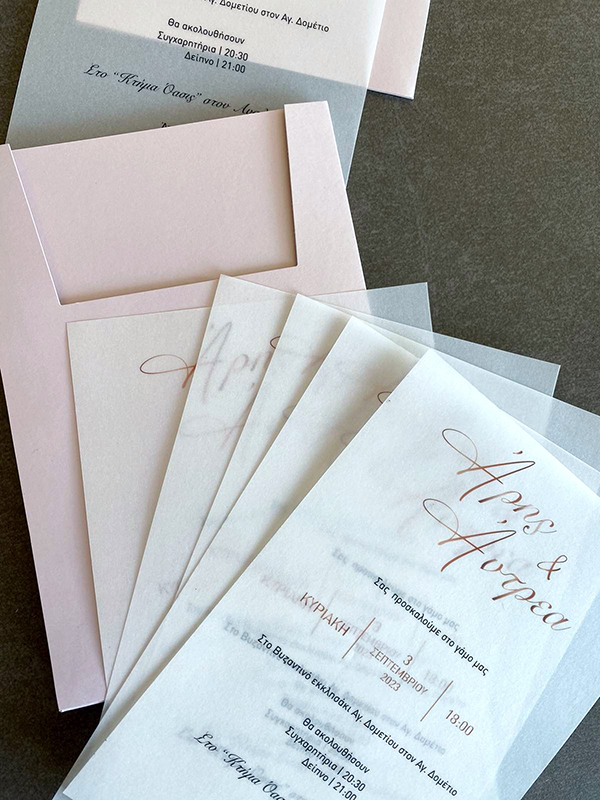 Αγ. Δομετίου στον Αγ. Δομέτιο
Θα ακολουθήσουν
Συγχαρητήρια | 20:30
Δείπνο | 21:00
Στο "Κτήμα Όασις" στον
Άρης
Άρης
&
Άστρεα
Σας προσκαλούμε στο γάμο μας
ΚΥΡΙΑΚΗ
3
ΣΕΠΤΕΜΒΡΙΟΥ
2023
18:00
Στο Βυζαντινό εκκλησάκι Αγ. Δομετίου στον Αγ. Δομέτιο
Θα ακολουθήσουν
Συγχαρητήρια | 20:30
Δείπνο | 21:00
Στο "Κτήμα Όασις"